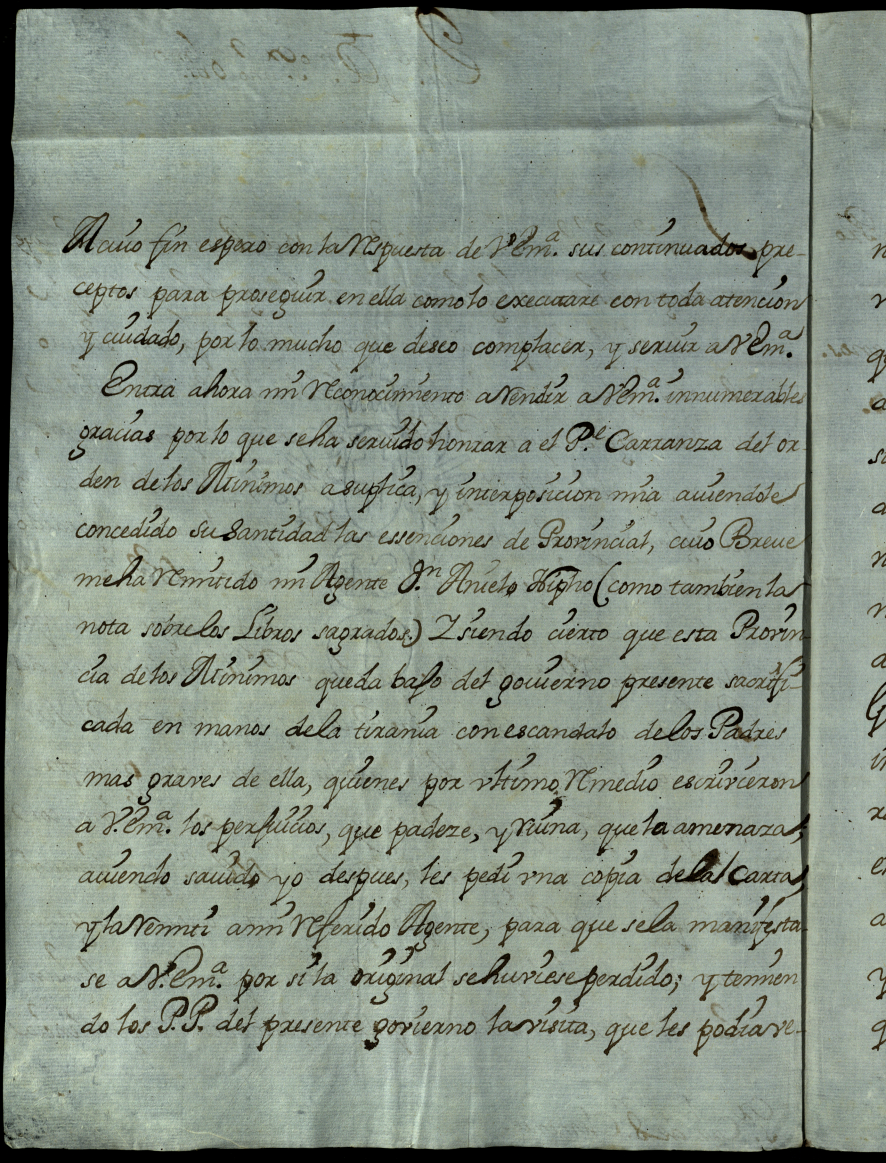 A cuio fin espero con la respuesta de V.Em.ª sus continuados pre-
ceptos para proseguir en ella como lo executare con toda atencion
y cuidado, por lo mucho que deseo complacer, y seruir a V Em.ª
Entra ahora mi reconocimiento a rendir a V.Em.ª innumerables
gracias por lo que se ha seruido honrar a el P.e Carranza del or-
den de los Minimos a suplica, y interposicion mia auiendole
concedido Su Santidad las essenciones de Provincial, cuio Breue
me ha remitido mi Agente J.n Aniello (como tambien la
nota sobre los Libros sagrados.) Y siendo cierto que esta Provin-
cia de los Minimos queda bajo del gouierno presente sacrifi-
cada en manos de la tirania con escandalo de los Padres
mas graves de ella, quienes por vltimo remedio escriuieron
a V.Em.ª los perjuicios, que padeze, y ruina, que la amenaza;
auiendo sauido yo despues, les pedi vna copia de la Carta,
y la remiti a mi referido Agente, para que se la manifesta-
se a V.Em.ª por si la original se huviese perdido; y temien
do los P.P. del presente govierno la visita, que les podia re-